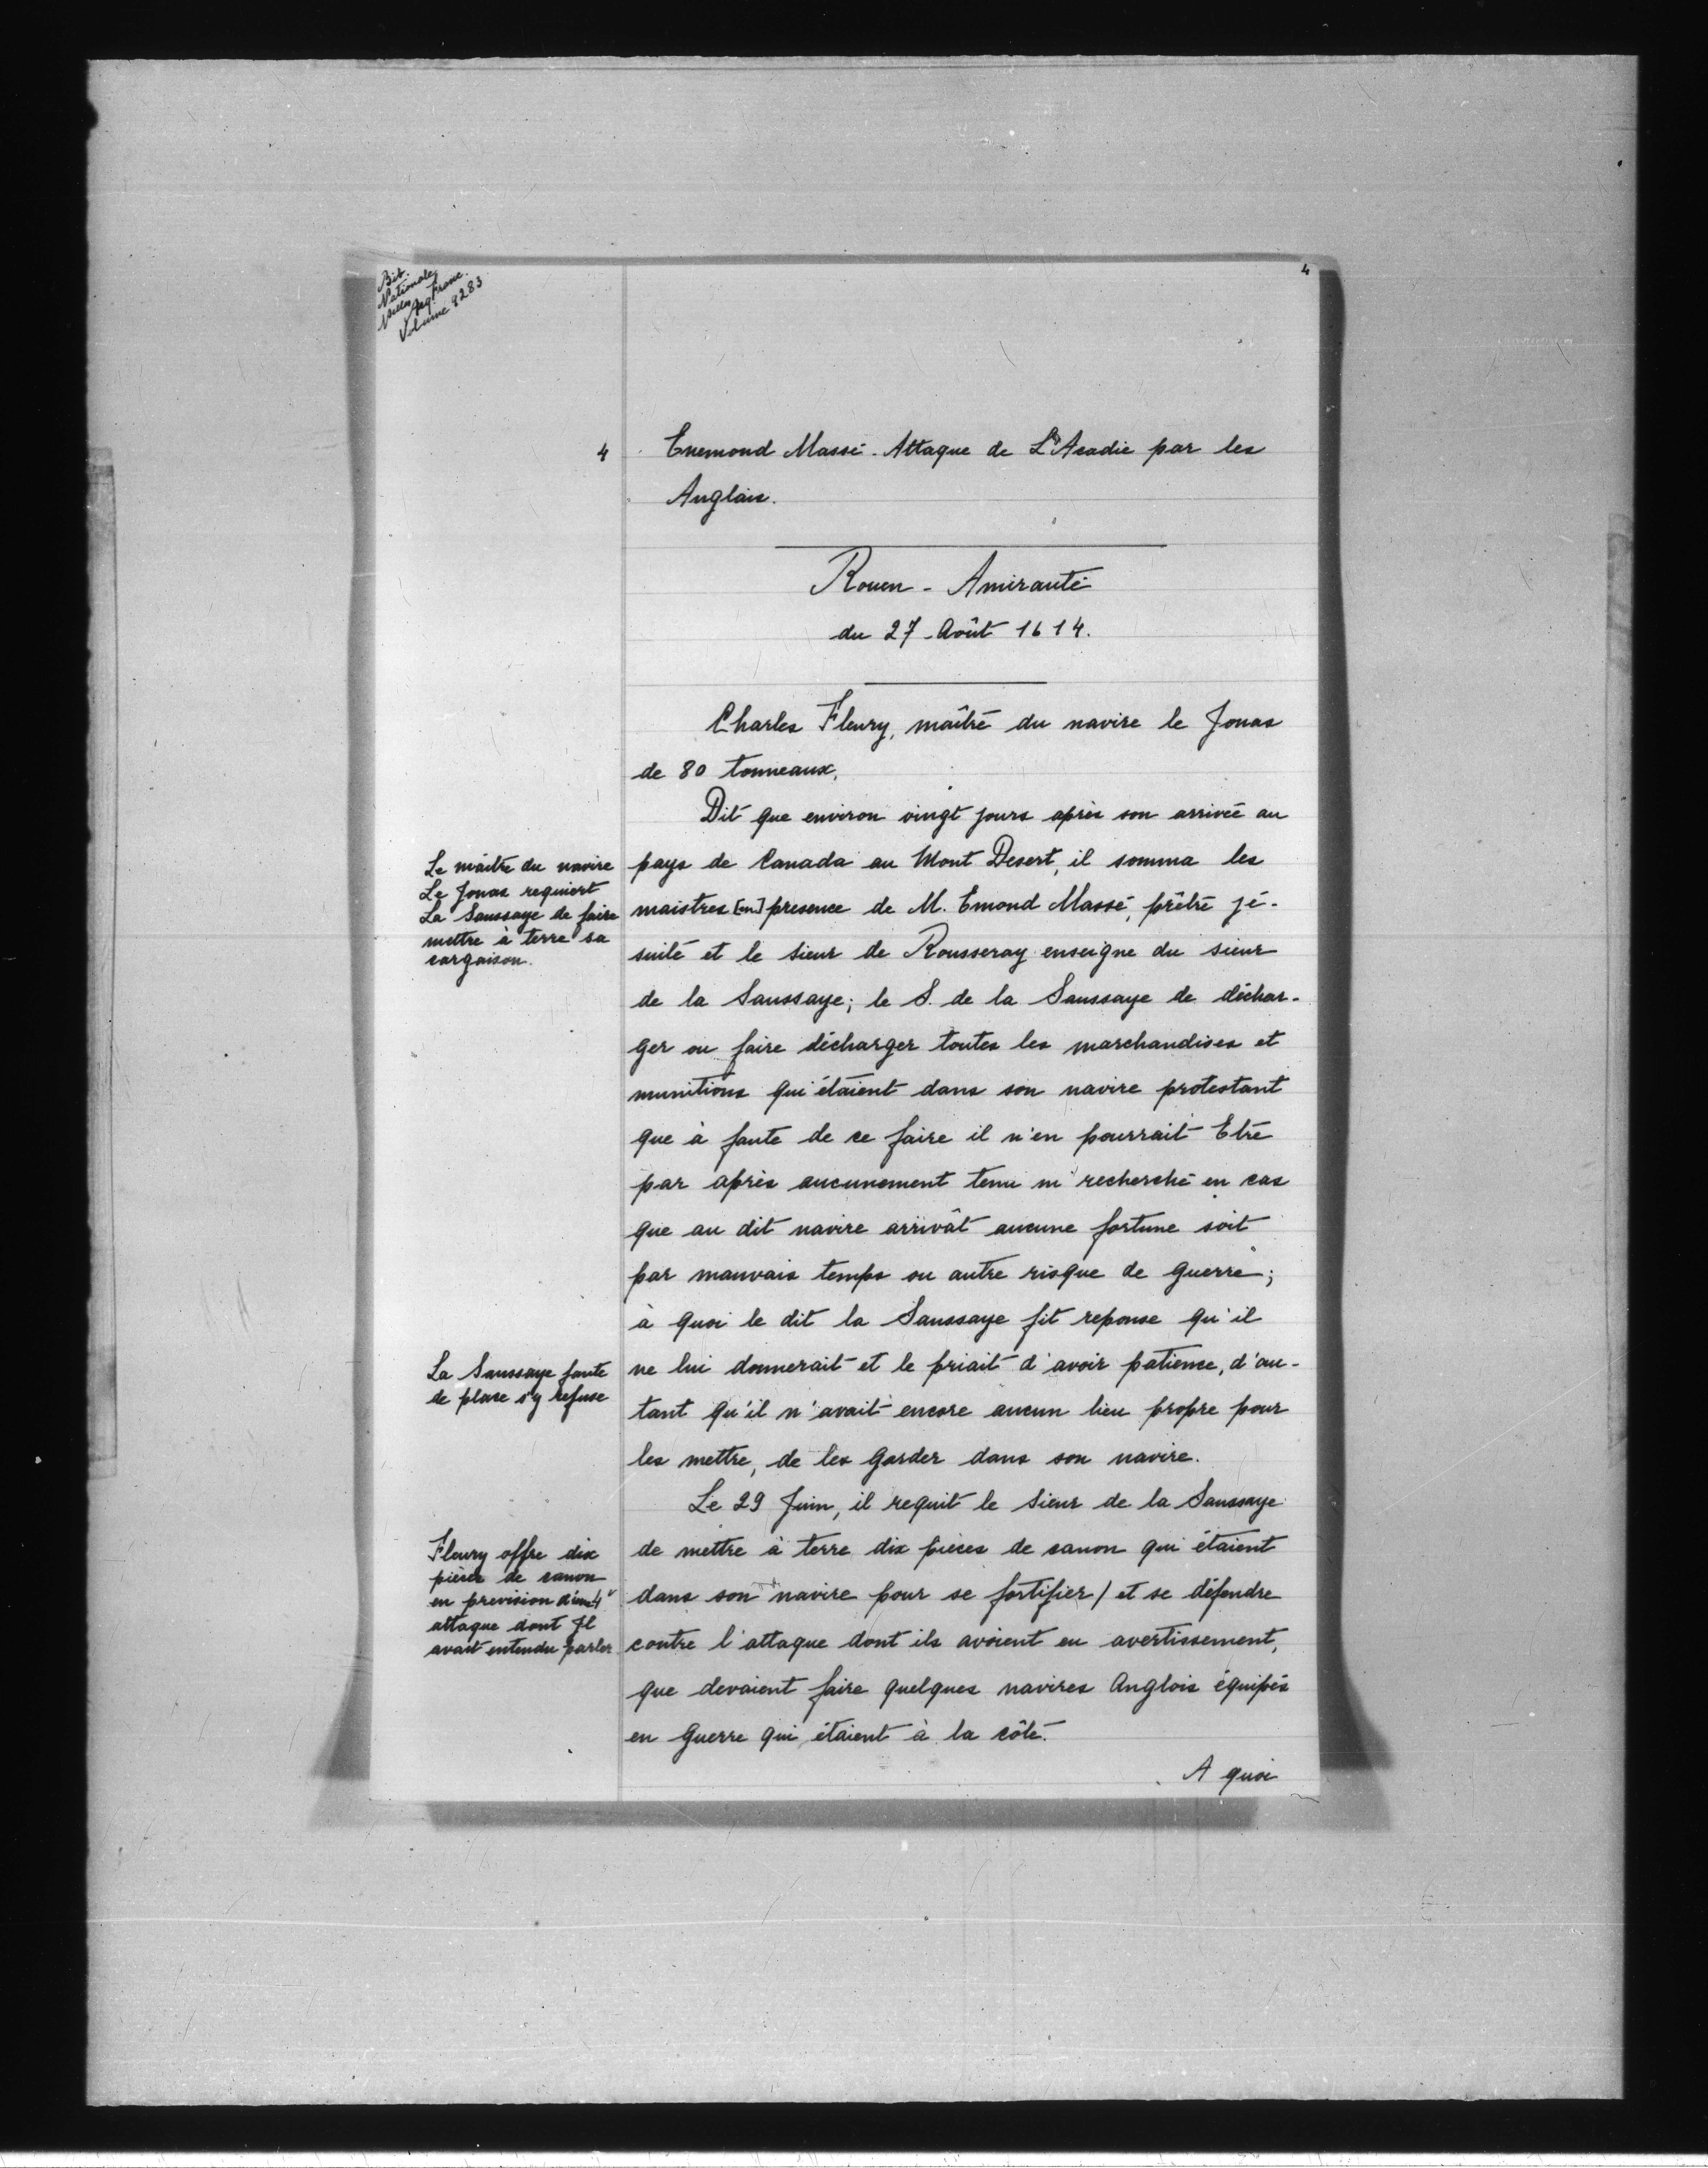 4
Bib.
Nationale
Nouv. Acq. Franc.
Volume 9283
4
Enemond Massé - Attaque de L'Acadie par les
Anglais.
Rouen - Amirauté
du 27 Août 1614.
Charles Fleury, maîtré du navire le Jonas
de 80 tonneaux,
Dit que environ vingt jours après son arrivée au
pays de Canada au Mont Desert, il somma les
maistres [en] presence de M. Emond Massé, prêtré jé-
suite et le sieur de Rousseray enseigne du sieur
de la Saussaye; le S. de la Saussaye de déchar-
ger ou faire décharger toutes les marchandises et
munitions qui étaient dans son navire protestant
que à faute de ce faire il n'en pourrait Etré
par après aucunement tenu ni recherché en cas
que au dit navire arrivât aucune fortune soit
par mauvais temps ou autre risque de guerre;
à quoi le dit la Saussaye fit reponse qu'il
ne lui donnerait et le priait d'avoir patience, d'au-
tant qu'il n'avait encore aucun lieu propre pour
les mettre, de les garder dans son navire.
Le 29 Juin, il requit le sieur de la Saussaye
de mettre à terre dix pièces de canon qui étaient
dans son navire pour se fortifier / et se défendre
contre l'attaque dont ils avoient eu avertissement,
que devaient faire quelques navires Anglois équipés
en guerre qui étaient à la côté.
A quoi
Le maître du navire
Le Jonas requiert
La Saussaye de faire
mettre à terre sa
cargaison.
La Saussaye faute
de place s'y refuse
Fleury offre dix
pièces de canon
en prevision d'une
attaque dont Il
avait entendu parler